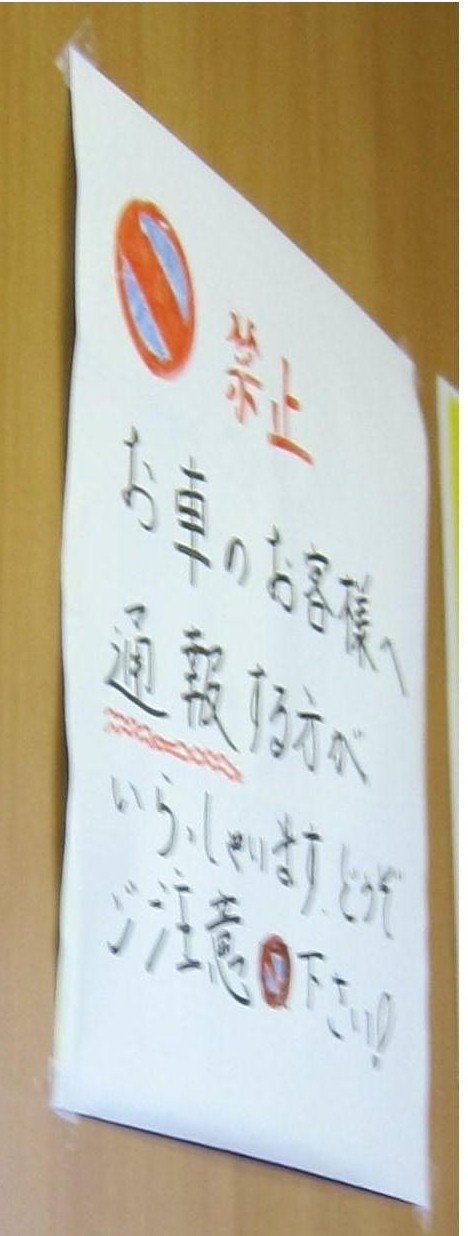 禁止
お車のお客様へ
通報する方が
いらっしゃいます、どうぞ
ご注意下さい!